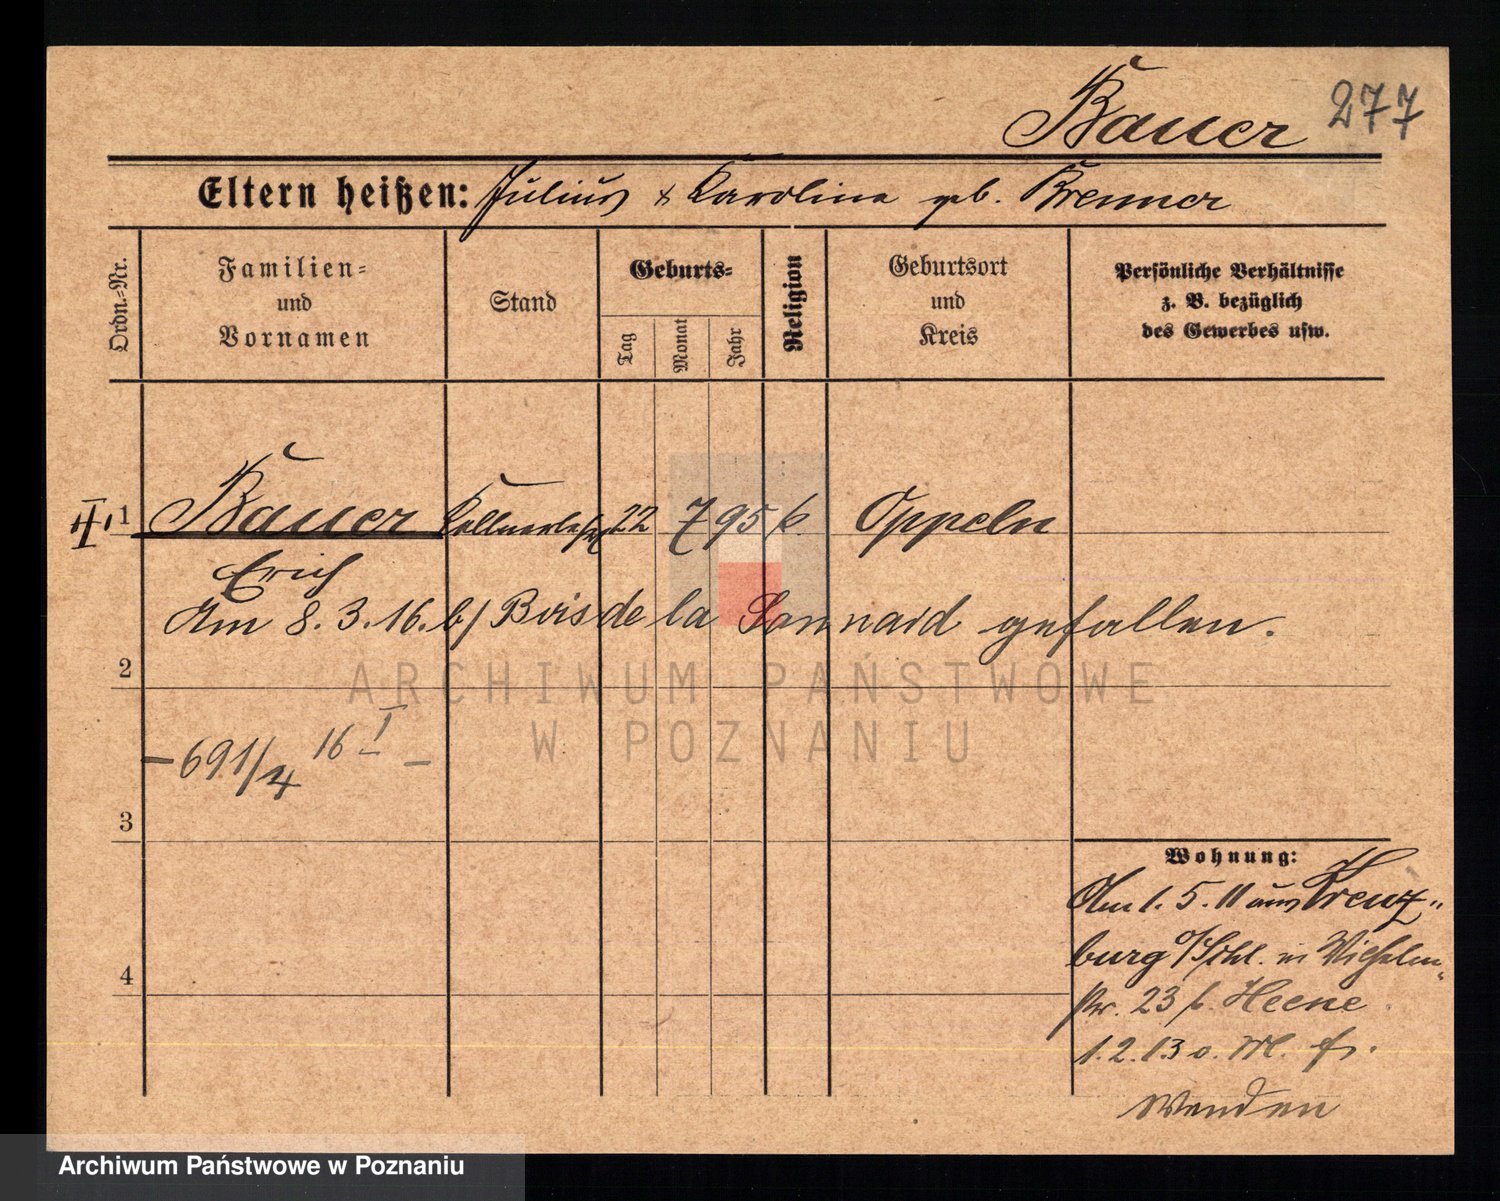 Bauer 277
Eltern heißen: Julius & Karolina geb. Brenner
Ordn.-Nr.
Familien-
und
Vornamen
Stand
Geburts-
Tag
Monat
Jahr
Religion
Geburtsort
und
Kreis
Persönliche Verhältnisse
z. B. bezüglich
des Gewerbes usw.
II. 1 Bauer 22 7 95 k. Oppeln
Erich
Am 8. 3. 16. b/ Bois de la gefallen.
2
ARCHIWUM PAŃSTWOWE
W POZNANIU
- 691/4 16 I -
3
Wohnung:
Am 1. 5. 11 aus Kreuz-
burg o/Schl. in Wilhelm-
str. 23 b. Heene
4
1. 2. 13 o.
Wenden
Archiwum Państwowe w Poznaniu